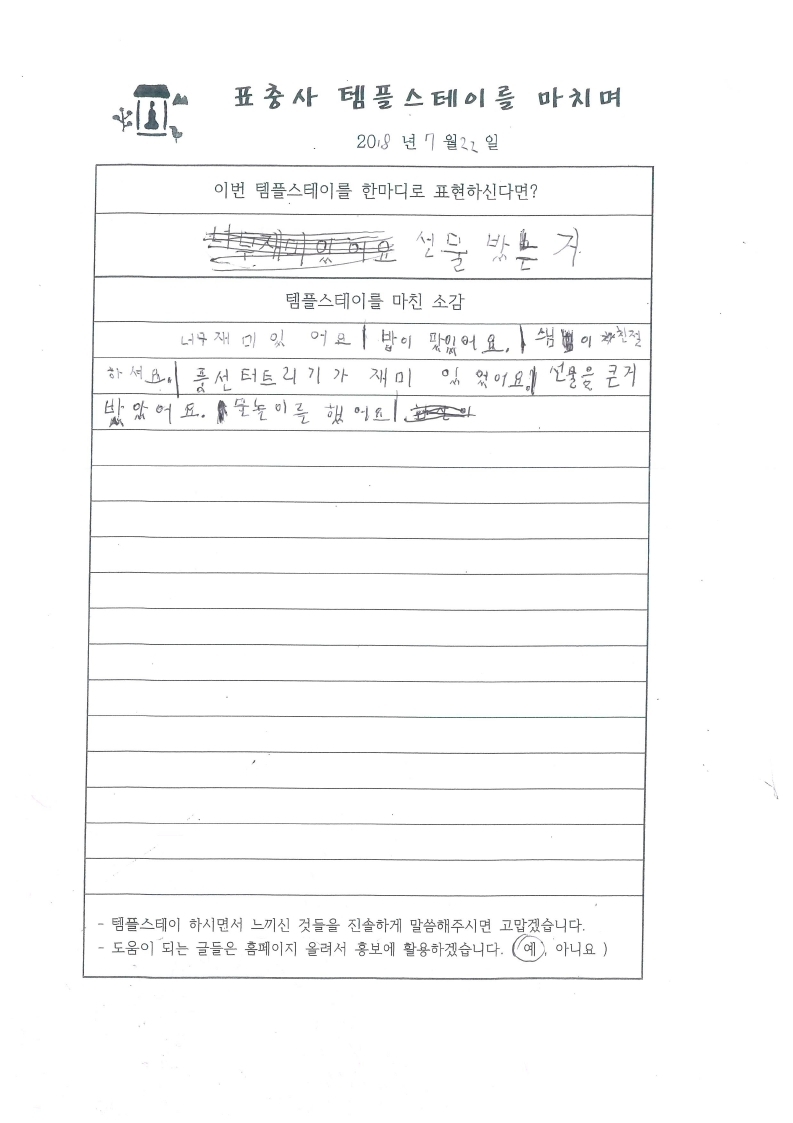 표충사 템플스테이를 마치며
2018년 7월22일
이번 템플스테이를 한마디로 표현하신다면?
너무재미있어요 선물 받은 거
템플스테이를 마친 소감
너무재미있어요 밥이 맛있어요. 스님이 친절
하셔요. 풍선터트리기가 재미있었어요 선물을 큰거
받았어요. 물놀이를 했어요
- 템플스테이 하시면서 느끼신 것들을 진솔하게 말씀해주시면 고맙겠습니다.
- 도움이 되는 글들은 홈페이지 올려서 홍보에 활용하겠습니다. ( 예, 아니요 )